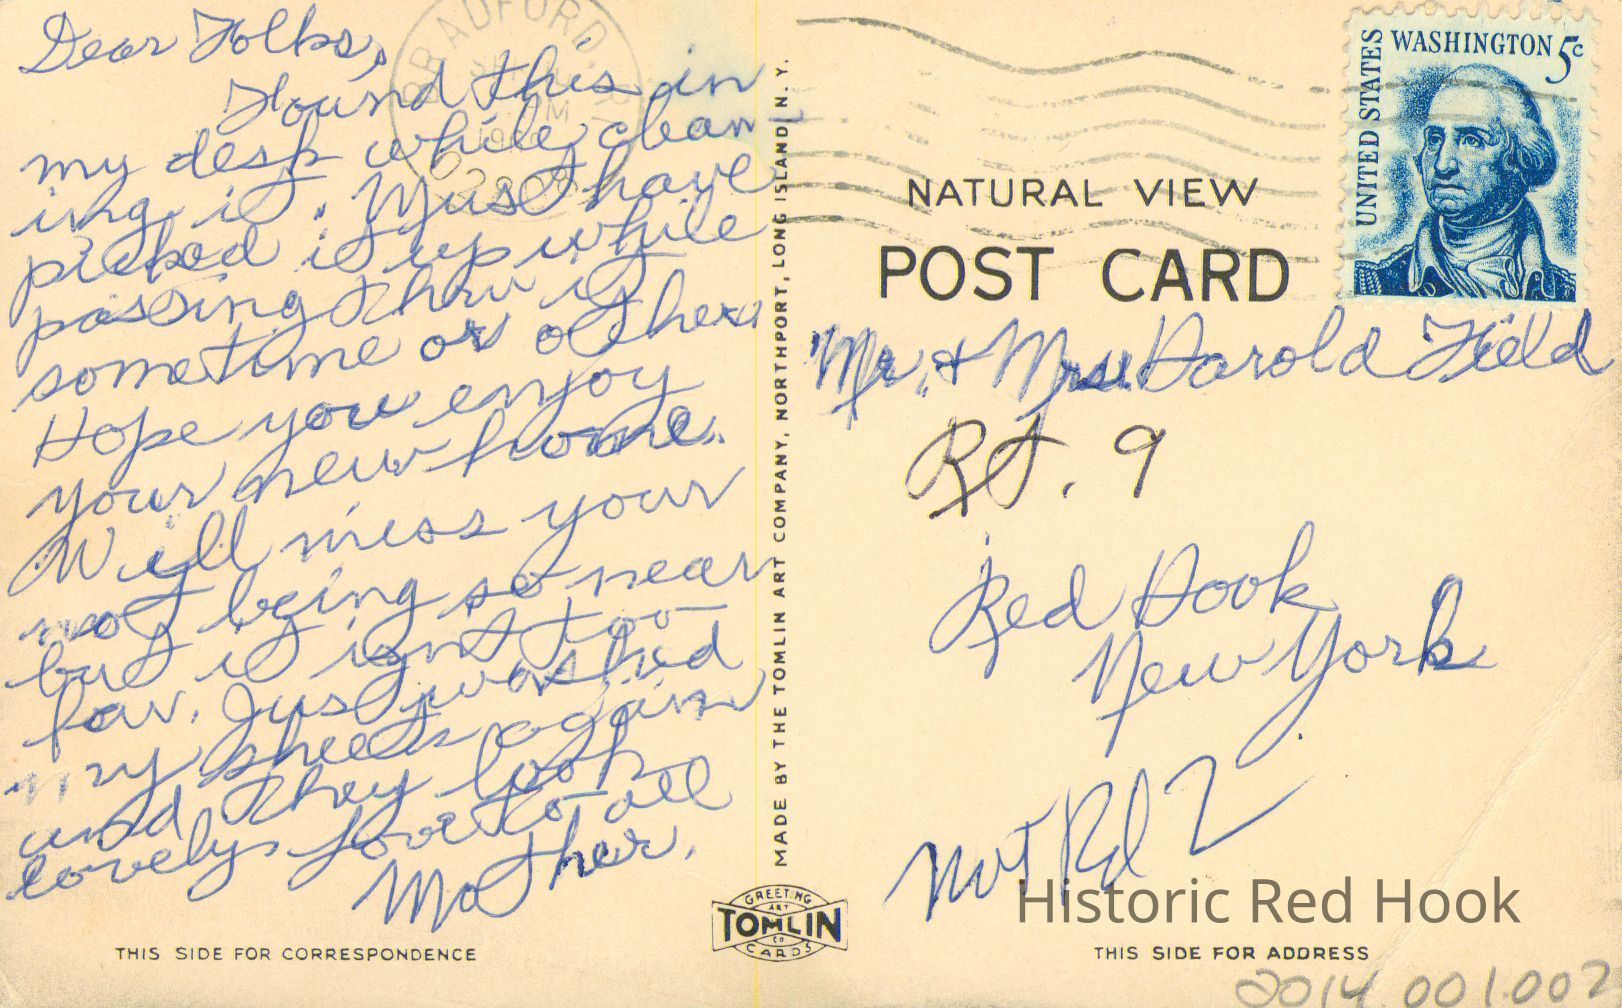 Dear Folks,
Found this in
my desk while clean
ing it. Must have
picked it up while
passing thru it
sometime or other.
Hope you enjoy
your new home.
Will miss your
not being so near
but it isn't too
far. Just washed
my sheets again
and they look
lovely. Love to all
Mother.
THIS SIDE FOR CORRESPONDENCE
BRADFORD
MADE BY THE TOMLIN ART COMPANY, NORTHPORT, LONG ISLAND, N.Y.
GREETING
ART
TOMLIN
CO
CARDS
UNITED STATES
WASHINGTON 5c
NATURAL VIEW
POST CARD
Mr. & Mrs. Harold Field
Rt. 9
Red Hook
New York
Not Rd 2
Historic Red Hook
THIS SIDE FOR ADDRESS
2014 001.002